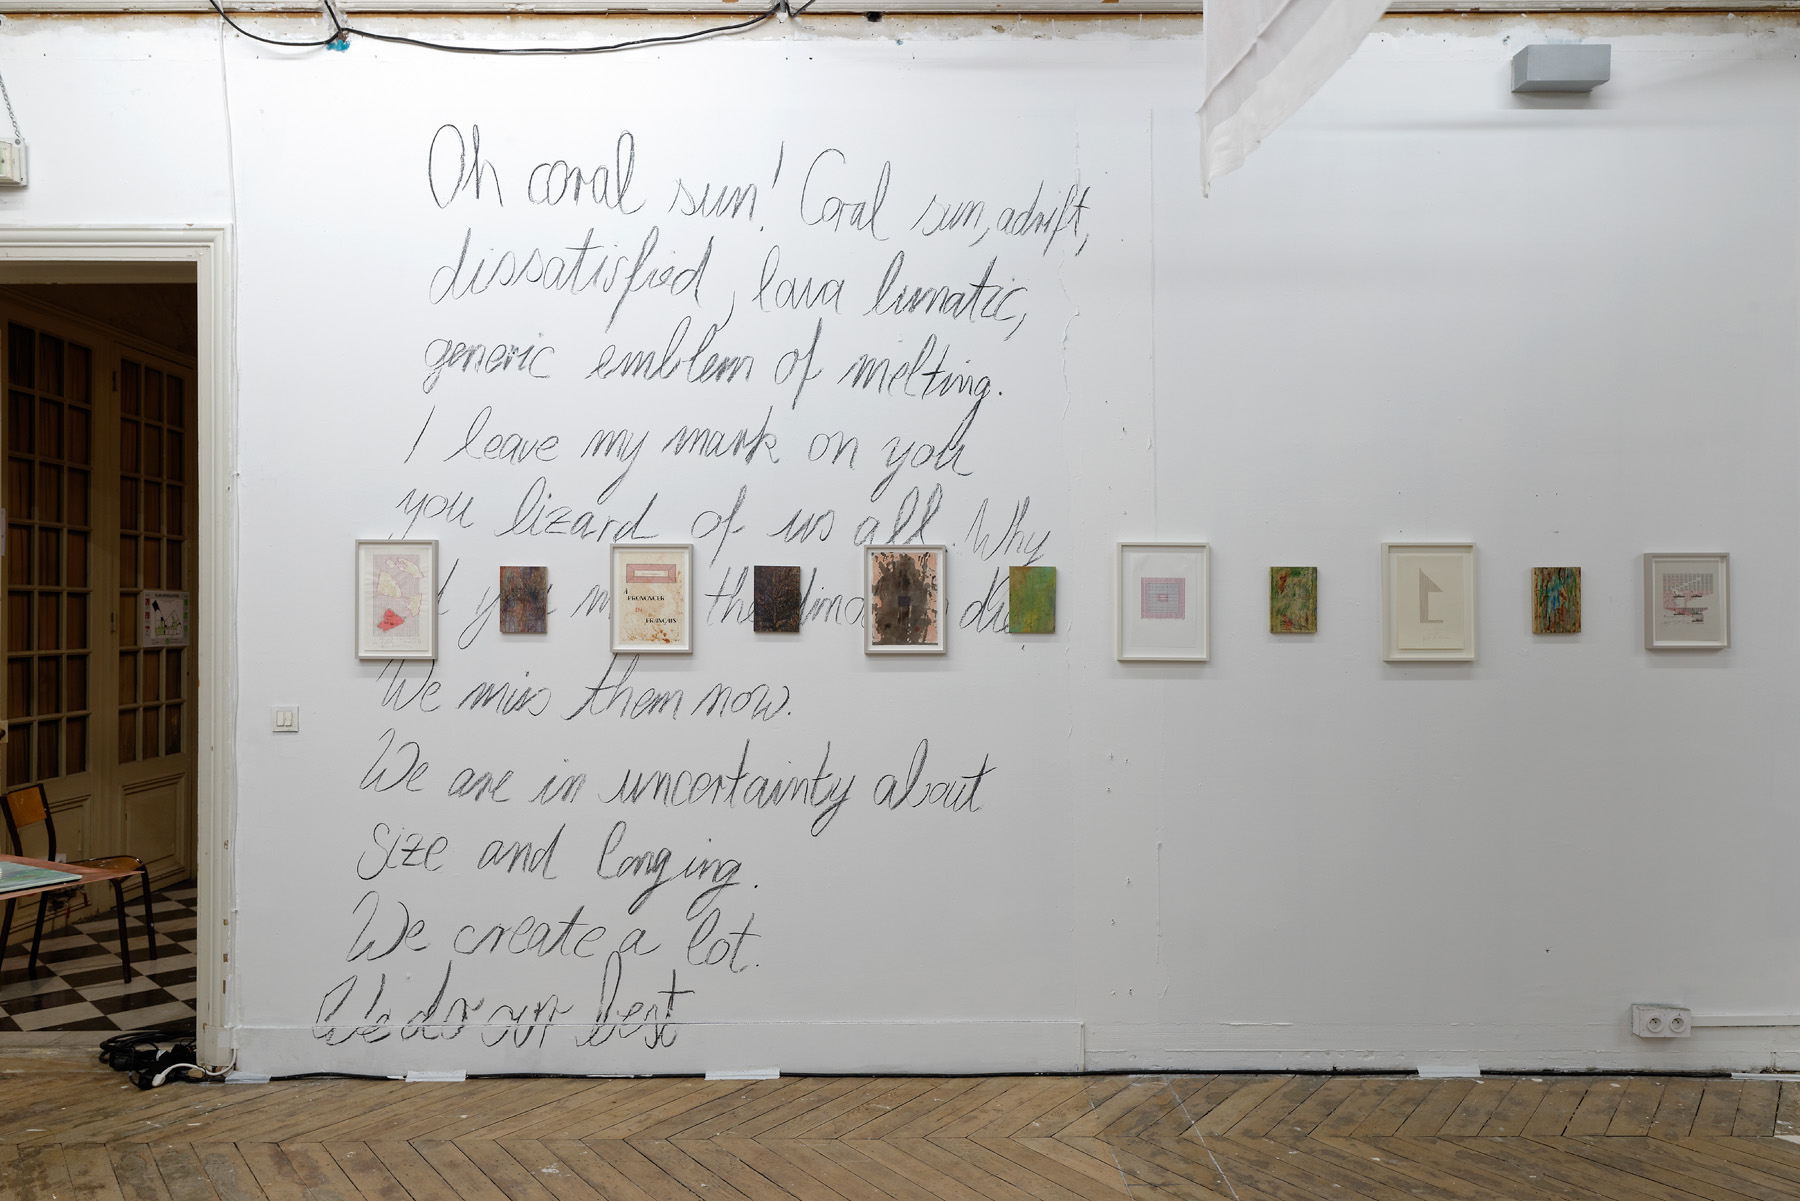 Oh coral sun! Coral sun, adrift,
dissatisfied, lava lunatic,
generic emblem of melting.
I leave my mark on you
you lizard of us all. Why
the
We miss them now.
We are in uncertainty about
size and longing.
We create a lot.
We do our best
A
PRONONCER
EN
FRANÇAIS